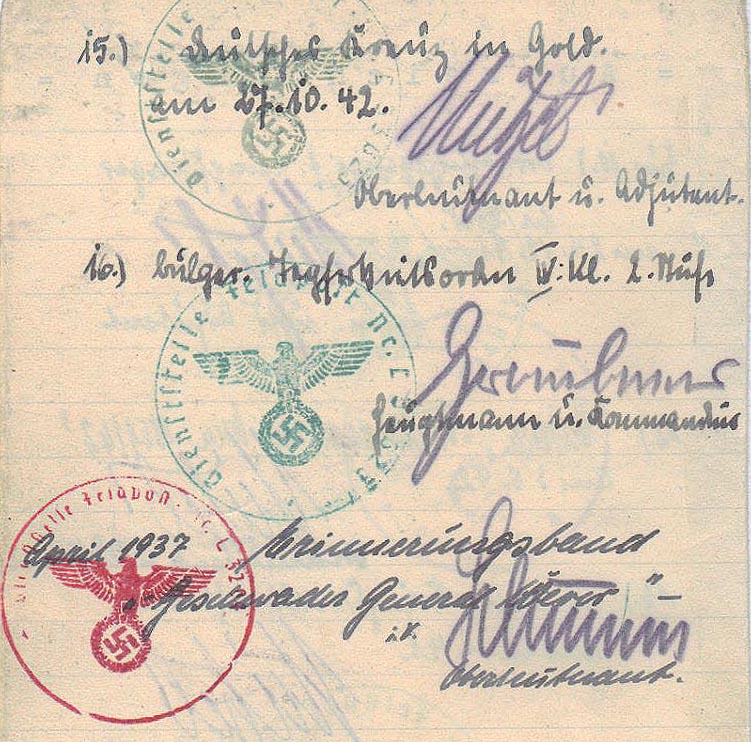 15.) Deutsches Kreuz in Gold.
am 27.10.42.
Oberleutnant u. Adjutant.
16.) bulger. Tapferkeitsorden IV. Kl. 2. Stufe
Hauptmann u. Kommandeur
April 1937 Erinnerungsband
"Geschwader General Wever"
i.V.
Oberleutnant.
Dienststelle
Dienststelle Feldpost Nr. L
Dienststelle Feldpost Nr. L